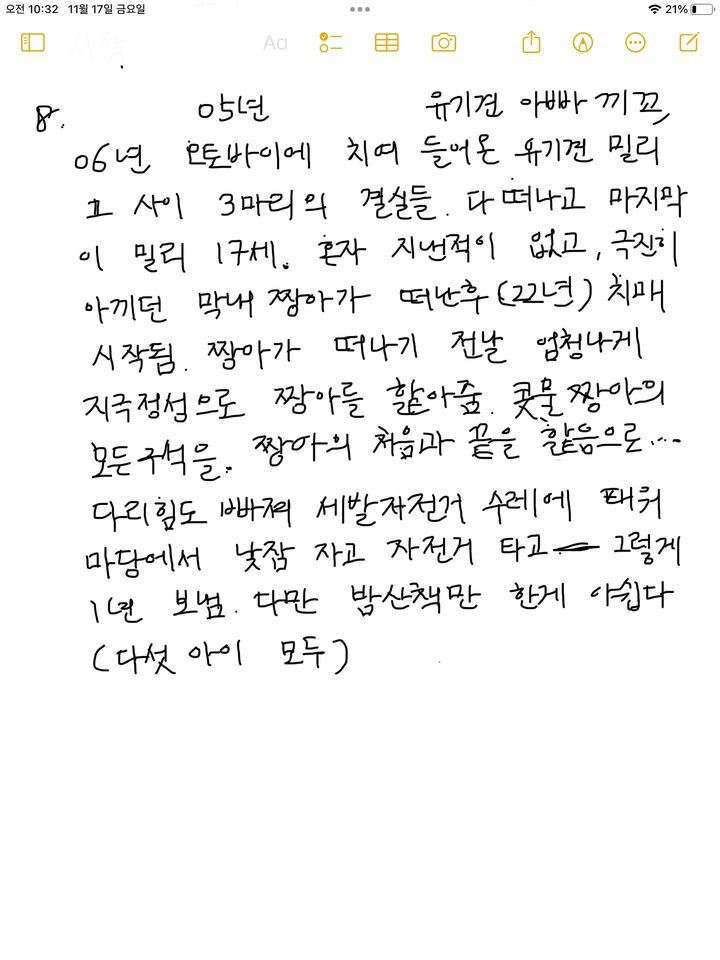 오전 10:32 11월 17일 금요일 21%
시작
Aa
8. 05년 유기견 아빠 끼꼬,
06년 오토바이에 치여 들어온 유기견 밀리
그 사이 3마리의 결실들. 다 떠나고 마지막
이 밀리 17세. 혼자 지난적이 없고, 극진히
아끼던 막내 짱아가 떠난후 (22년) 치매
시작됨. 짱아가 떠나기 전날 엄청나게
지극정성으로 짱아를 핥아줌. 콧물 짱아의
모든구석을. 짱아의 처음과 끝을 핥음으로...
다리힘도 빠져 세발자전거 수레에 태워
마당에서 낮잠 자고 자전거 타고 그렇게
1년 보냄. 다만 밤산책만 한게 아쉽다
(다섯 아이 모두)